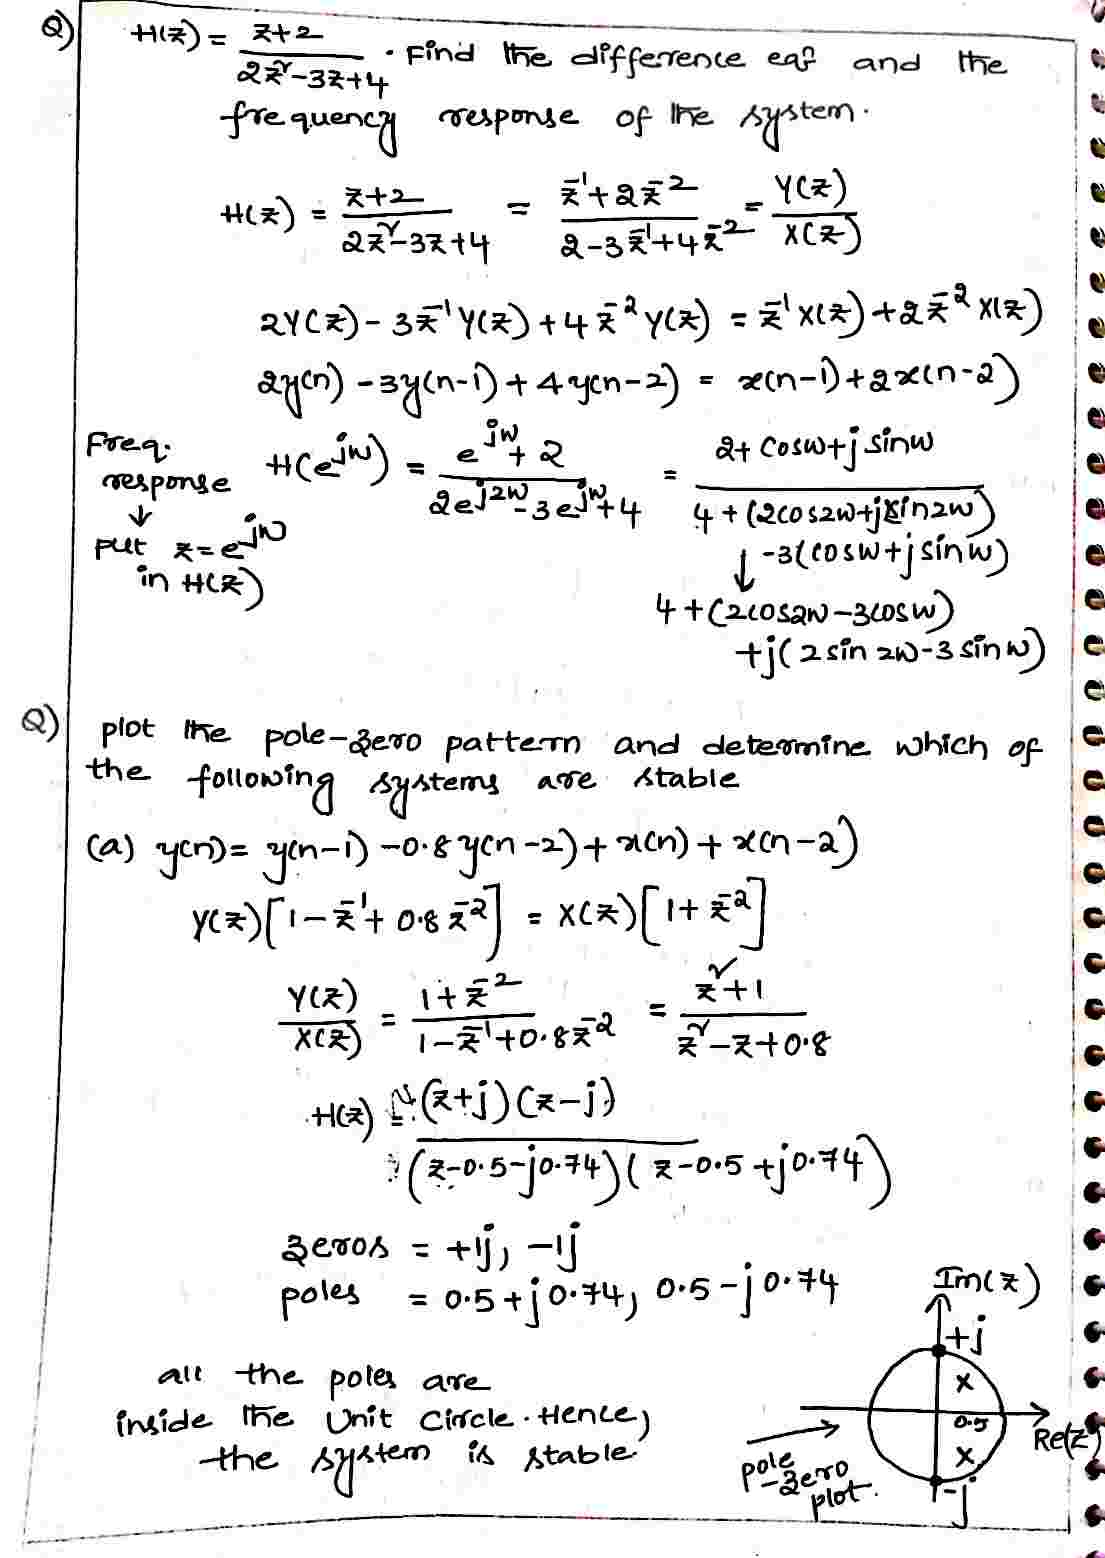 Q) H(z) = z+2 / 2z²-3z+4 . Find the difference eqn and the
frequency response of the system.
H(z) = z+2 / 2z²-3z+4 = z⁻¹+2z⁻² / 2-3z⁻¹+4z⁻² = Y(z) / X(z)
2Y(z) - 3z⁻¹Y(z) + 4z⁻²Y(z) = z⁻¹X(z) + 2z⁻²X(z)
2y(n) - 3y(n-1) + 4y(n-2) = x(n-1) + 2x(n-2)
Freq. response ↓ put z = e^jw in H(z)
H(e^jw) = e^jw + 2 / 2e^j2w - 3e^jw + 4 = 2+cosw+j sinw / 4+(2cos2w+j2sin2w)
-3(cosw+j sinw)
↓
4+(2cos2w-3cosw)
+j(2sin2w-3sinw)
Q) plot the pole-zero pattern and determine which of
the following systems are stable
(a) y(n) = y(n-1) - 0.8y(n-2) + x(n) + x(n-2)
Y(z)[1-z⁻¹+0.8z⁻²] = X(z)[1+z⁻²]
Y(z) / X(z) = 1+z⁻² / 1-z⁻¹+0.8z⁻² = z²+1 / z²-z+0.8
H(z) = (z+j)(z-j) / (z-0.5-j0.74)(z-0.5+j0.74)
zeros = +1j, -1j
poles = 0.5+j0.74, 0.5-j0.74
all the poles are
inside the Unit Circle. Hence,
the system is stable
Im(z)
+j
x
0.5
Re(z)
x
-j
pole
-zero
plot.